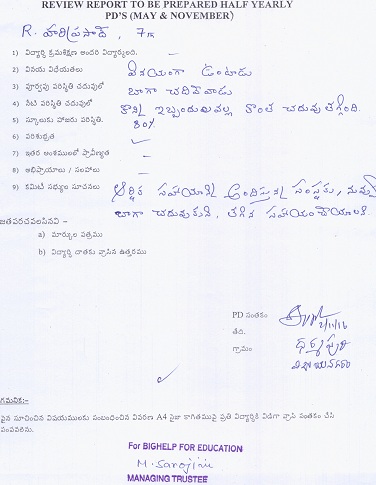 REVIEW REPORT TO BE PREPARED HALF YEARLY
PD'S (MAY & NOVEMBER)
R. హరిప్రసాద్, 7th
1) విద్యార్థి క్రమశిక్షణ అందరి విద్యార్థులది. —
2) వినయ విధేయతలు వినయంగా ఉంటాడు
3) పూర్వపు పరిస్థితి చదువులో బాగా చదివేవాడు
4) నేటి పరిస్థితి చదువులో కొన్ని ఇబ్బందులవల్ల కొంత చదువు తగ్గింది.
5) స్కూలుకు హాజరు పరిస్థితి. 80%
6) పరిశుభ్రత ✓
7) ఇతర అంశములలో ప్రావీణ్యత —
8) అభిప్రాయాలు / సలహాలు —
9) కమిటీ సభ్యుల సూచనలు ఆర్థిక సహాయాన్ని అందిస్తున్న సంస్థకు,
బాగా చదువుకుని, తగిన సహాయం చేయాలి.
జతపరచవలసినవి –
a) మార్కుల పత్రము
b) విద్యార్థి దాతకు వ్రాసిన ఉత్తరము
PD సంతకం
తేది. 2/11/16
గ్రామం ధర్మపురి
విజయనగరం
✓
గమనిక:-
పైన సూచించిన విషయములకు సంబంధించిన వివరణ A4 సైజు కాగితముపై ప్రతి విద్యార్థికి విడిగా వ్రాసి సంతకం చేసి
పంపవలెను.
For BIGHELP FOR EDUCATION
M. Sarojini
MANAGING TRUSTEE